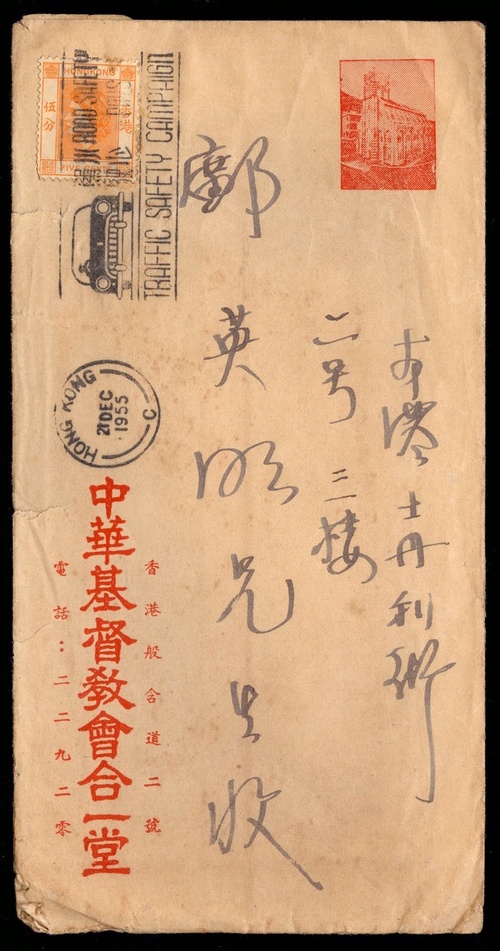 HONG KONG
香港
伍分
TRAFFIC SAFETY CAMPAIGN
HONG KONG
21 DEC
1955
C
本港士丹利街
二号三楼
鄺英明先生收
香港般含道二號
中華基督敎會合一堂
電話：二二九二零